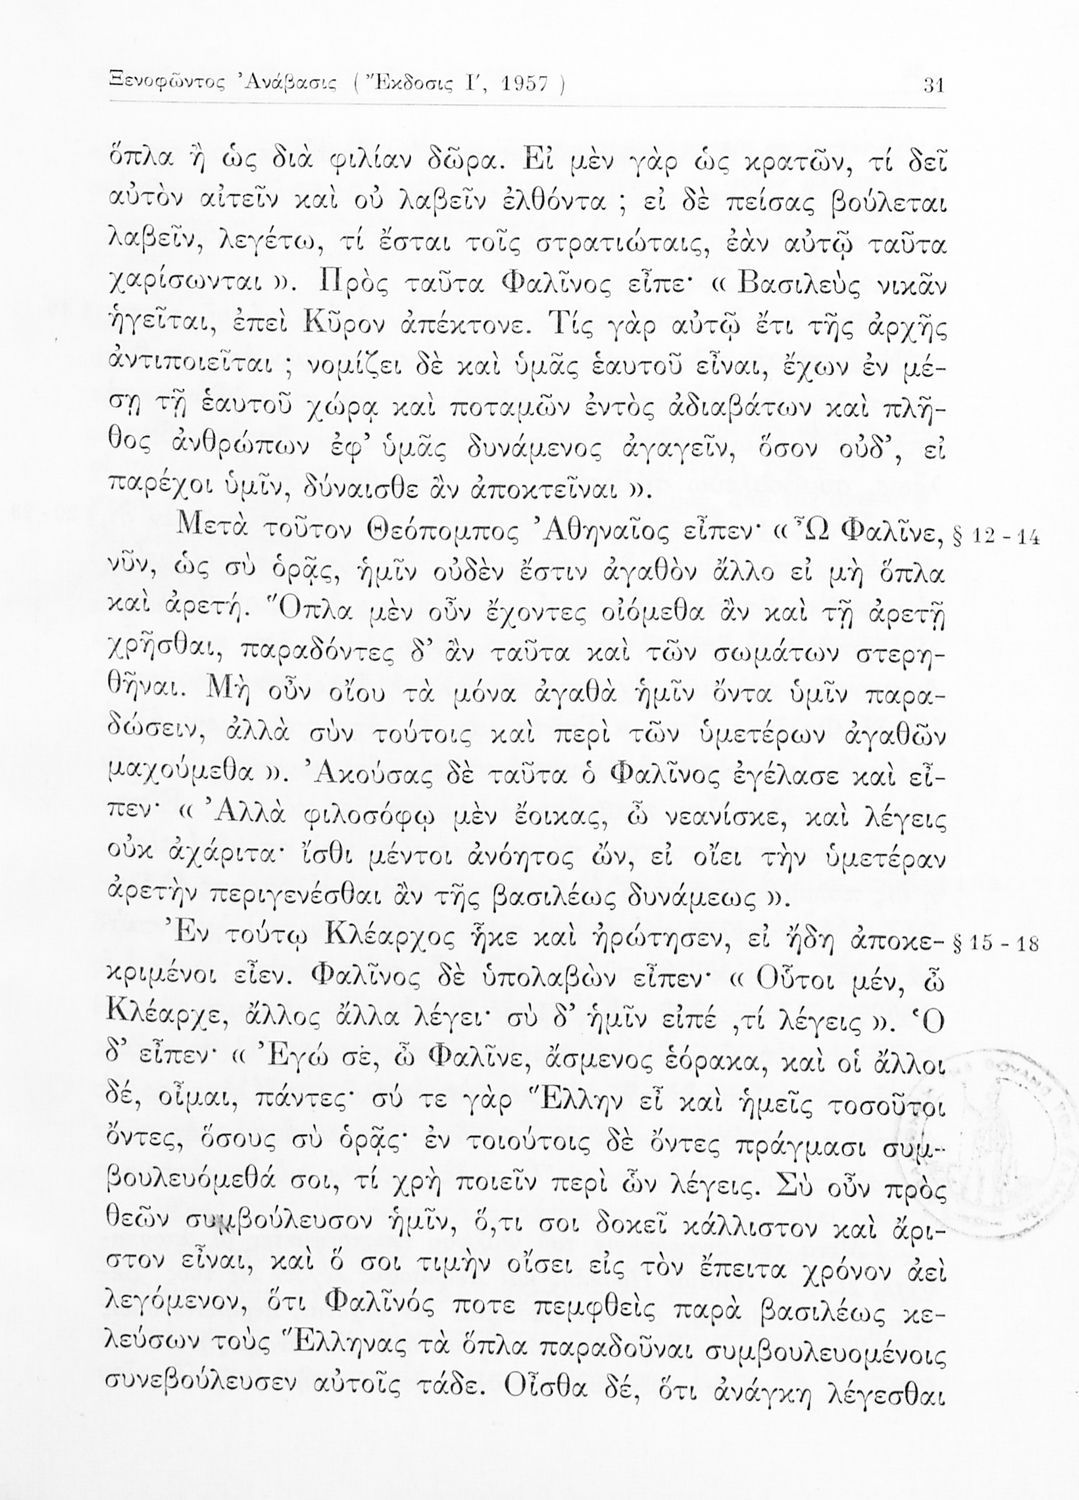 Ξενοφῶντος Ἀνάβασις ( Ἔκδοσις Ι΄, 1957 ) 31
ὅπλα ἢ ὡς διὰ φιλίαν δῶρα. Εἰ μὲν γὰρ ὡς κρατῶν, τί δεῖ
αὐτὸν αἰτεῖν καὶ οὐ λαβεῖν ἐλθόντα ; εἰ δὲ πείσας βούλεται
λαβεῖν, λεγέτω, τί ἔσται τοῖς στρατιώταις, ἐὰν αὐτῷ ταῦτα
χαρίσωνται ». Πρὸς ταῦτα Φαλῖνος εἶπε· « Βασιλεὺς νικᾶν
ἡγεῖται, ἐπεὶ Κῦρον ἀπέκτονε. Τίς γὰρ αὐτῷ ἔτι τῆς ἀρχῆς
ἀντιποιεῖται ; νομίζει δὲ καὶ ὑμᾶς ἑαυτοῦ εἶναι, ἔχων ἐν μέ-
σῃ τῇ ἑαυτοῦ χώρᾳ καὶ ποταμῶν ἐντὸς ἀδιαβάτων καὶ πλῆ-
θος ἀνθρώπων ἐφ’ ὑμᾶς δυνάμενος ἀγαγεῖν, ὅσον οὐδ’, εἰ
παρέχοι ὑμῖν, δύναισθε ἂν ἀποκτεῖναι ».
Μετὰ τοῦτον Θεόπομπος Ἀθηναῖος εἶπεν· « Ὦ Φαλῖνε, § 12 - 14
νῦν, ὡς σὺ ὁρᾷς, ἡμῖν οὐδὲν ἔστιν ἀγαθὸν ἄλλο εἰ μὴ ὅπλα
καὶ ἀρετή. Ὅπλα μὲν οὖν ἔχοντες οἰόμεθα ἂν καὶ τῇ ἀρετῇ
χρῆσθαι, παραδόντες δ’ ἂν ταῦτα καὶ τῶν σωμάτων στερη-
θῆναι. Μὴ οὖν οἴου τὰ μόνα ἀγαθὰ ἡμῖν ὄντα ὑμῖν παρα-
δώσειν, ἀλλὰ σὺν τούτοις καὶ περὶ τῶν ὑμετέρων ἀγαθῶν
μαχούμεθα ». Ἀκούσας δὲ ταῦτα ὁ Φαλῖνος ἐγέλασε καὶ εἶ-
πεν· « Ἀλλὰ φιλοσόφῳ μὲν ἔοικας, ὦ νεανίσκε, καὶ λέγεις
οὐκ ἀχάριτα· ἴσθι μέντοι ἀνόητος ὤν, εἰ οἴει τὴν ὑμετέραν
ἀρετὴν περιγενέσθαι ἂν τῆς βασιλέως δυνάμεως ».
Ἐν τούτῳ Κλέαρχος ἧκε καὶ ἠρώτησεν, εἰ ἤδη ἀποκε- § 15 - 18
κριμένοι εἶεν. Φαλῖνος δὲ ὑπολαβὼν εἶπεν· « Οὗτοι μέν, ὦ
Κλέαρχε, ἄλλος ἄλλα λέγει· σὺ δ’ ἡμῖν εἰπέ ,τί λέγεις ». Ὁ
δ’ εἶπεν· « Ἐγώ σε, ὦ Φαλῖνε, ἄσμενος ἑόρακα, καὶ οἱ ἄλλοι
δέ, οἶμαι, πάντες· σύ τε γὰρ Ἕλλην εἶ καὶ ἡμεῖς τοσοῦτοι
ὄντες, ὅσους σὺ ὁρᾷς· ἐν τοιούτοις δὲ ὄντες πράγμασι συμ-
βουλευόμεθά σοι, τί χρὴ ποιεῖν περὶ ὧν λέγεις. Σὺ οὖν πρὸς
θεῶν συμβούλευσον ἡμῖν, ὅ,τι σοι δοκεῖ κάλλιστον καὶ ἄρι-
στον εἶναι, καὶ ὅ σοι τιμὴν οἴσει εἰς τὸν ἔπειτα χρόνον ἀεὶ
λεγόμενον, ὅτι Φαλῖνός ποτε πεμφθεὶς παρὰ βασιλέως κε-
λεύσων τοὺς Ἕλληνας τὰ ὅπλα παραδοῦναι συμβουλευομένοις
συνεβούλευσεν αὐτοῖς τάδε. Οἶσθα δέ, ὅτι ἀνάγκη λέγεσθαι